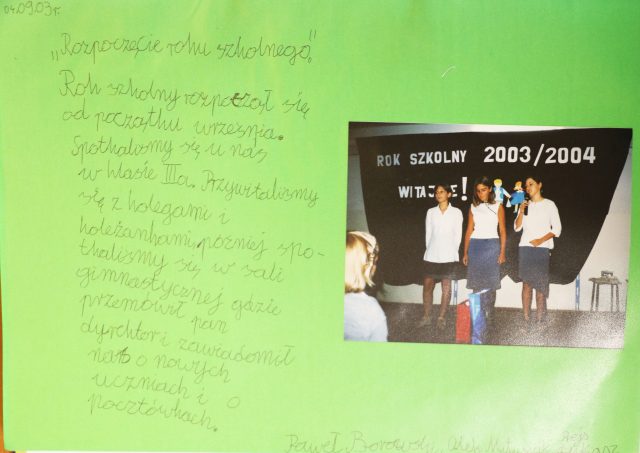 04.09.03r.
„Rozpoczęcie roku szkolnego."
Rok szkolny rozpoczął się
od początku września.
Spotkaliśmy się u nas
w klasie IIIa. Przywitaliśmy
się z kolegami i
koleżankami, później spo-
tkaliśmy się w sali
gimnastycznej gdzie
przemówił pan
dyrektor i zawiadomił
nas o nowych
uczniach i o
pocztówkach.
ROK SZKOLNY 2003/2004
WITAJCIE!
Paweł Borowski,